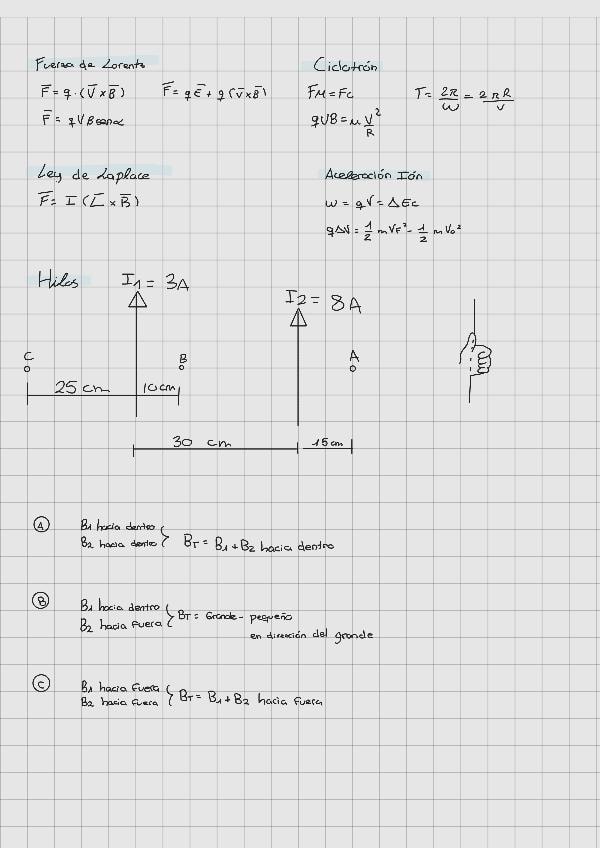 Fuerza de Lorentz
F̅ = q · (V̅ × B̅)    F̅ = q E̅ + q (V̅ × B̅)
F̅ = q V B senα
Ciclotrón
FM = Fc    T = 2π/ω = 2πR/V
qVB = m V²/R
Ley de Laplace
F̅ = I (L̅ × B̅)
Aceleración Ión
w = qV = ΔEc
qΔV = 1/2 m VF² - 1/2 m Vo²
Hilos    I1 = 3A
I2 = 8A
C    B    A
25 cm    10cm
30 cm    15cm
A
B1 hacia dentro
B2 hacia dentro } BT = B1 + B2 hacia dentro
B
B1 hacia dentro
B2 hacia Fuera } BT = Grande - pequeño
en dirección del grande
C
B1 hacia Fuera
B2 hacia Fuera } BT = B1 + B2 hacia Fuera